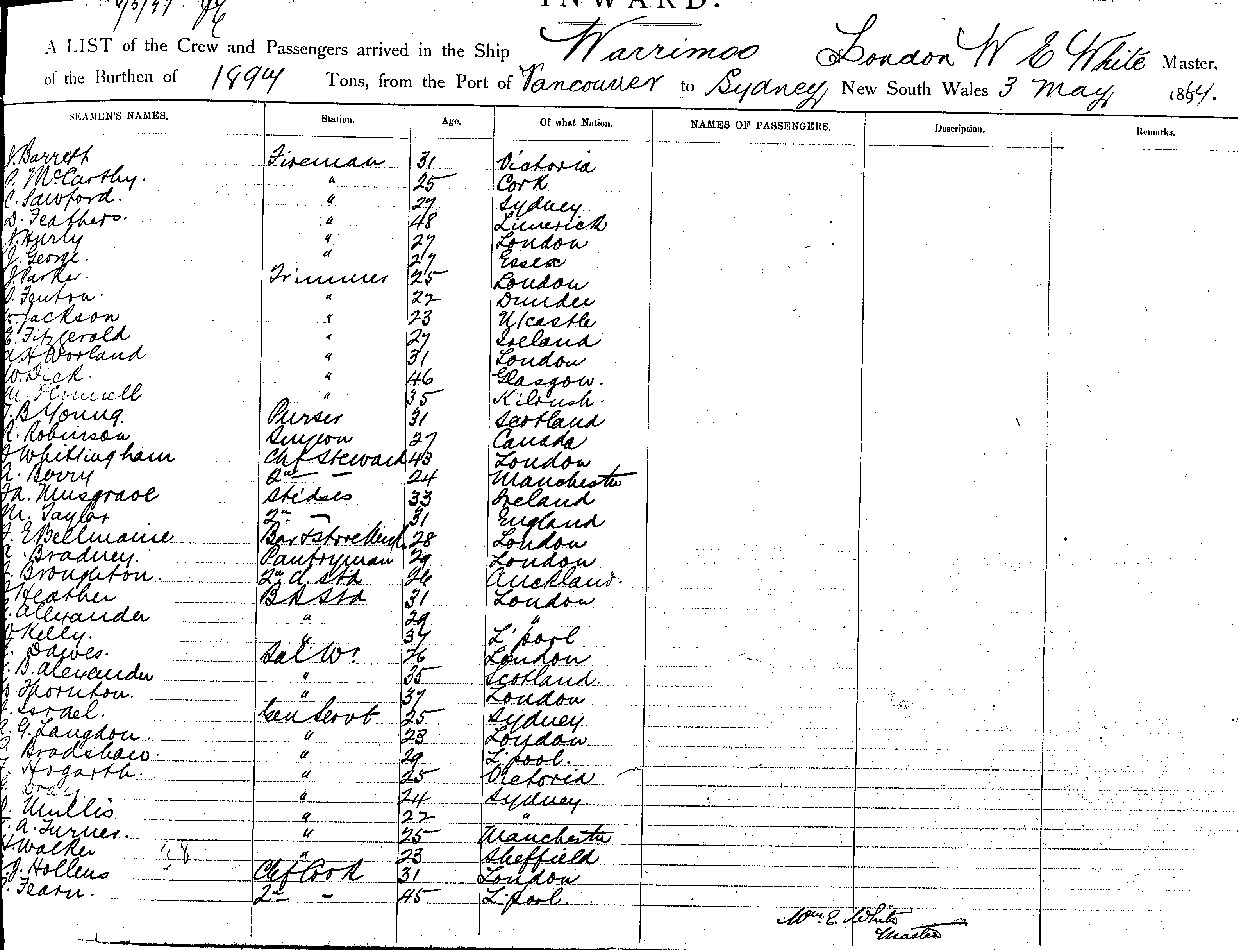 INWARD.
A LIST of the Crew and Passengers arrived in the Ship Warrimoo London W E White Master,
of the Burthen of 1894 Tons, from the Port of Vancouver to Sydney New South Wales 3 May 1894.
SEAMEN'S NAMES. Station. Age. Of what Nation. NAMES OF PASSENGERS. Description. Remarks.
J. Barrett Fireman 31 Victoria
McCarthy. " 25 Cork
C. Sawford. " 27 Sydney
D. Feathers. " 48 Limerick
Hurly " 27 London
J. George. " 27 Essex
Parke. Trimmer 25 London
Fenton. " 22 Dundee
Jackson " 23 N/castle
Fitzgerald " 27 Ireland
Worland " 31 London
W. Dick. " 46 Glasgow.
M. " 35 Kilrush.
B Young Purser 31 Scotland
R. Robinson Surgeon 27 Canada
Whittingham Chf Steward 43 London
Berry 2nd - 24 Manchester
Musgrave Stidses 33 Ireland
M. Taylor 2nd - 31 England
E Bellmaine 28 London
Bradney. Pantryman 29 London
Broughton. 2nd d. Std 26 Auckland.
Heather B R Std 31 London
Alexander " 29 "
Kelly. " 37 L'pool
Dawes. Sal Wr 26 London
B. Alexander " 35 Scotland
Thornton. " 37 London
Israel. Gen Servt 25 Sydney
G. Langdon. " 23 London
Bradshaw. " 29 L'pool.
Hogarth. " 25 Victoria
" 24 Sydney
Mullis " 22 "
A. Turner. " 25 Manchester
Walker " 23 Sheffield
J. Hollens Chf Cook 31 London
Fearn. 2nd - 45 L'pool.
Wm. E. White
Master